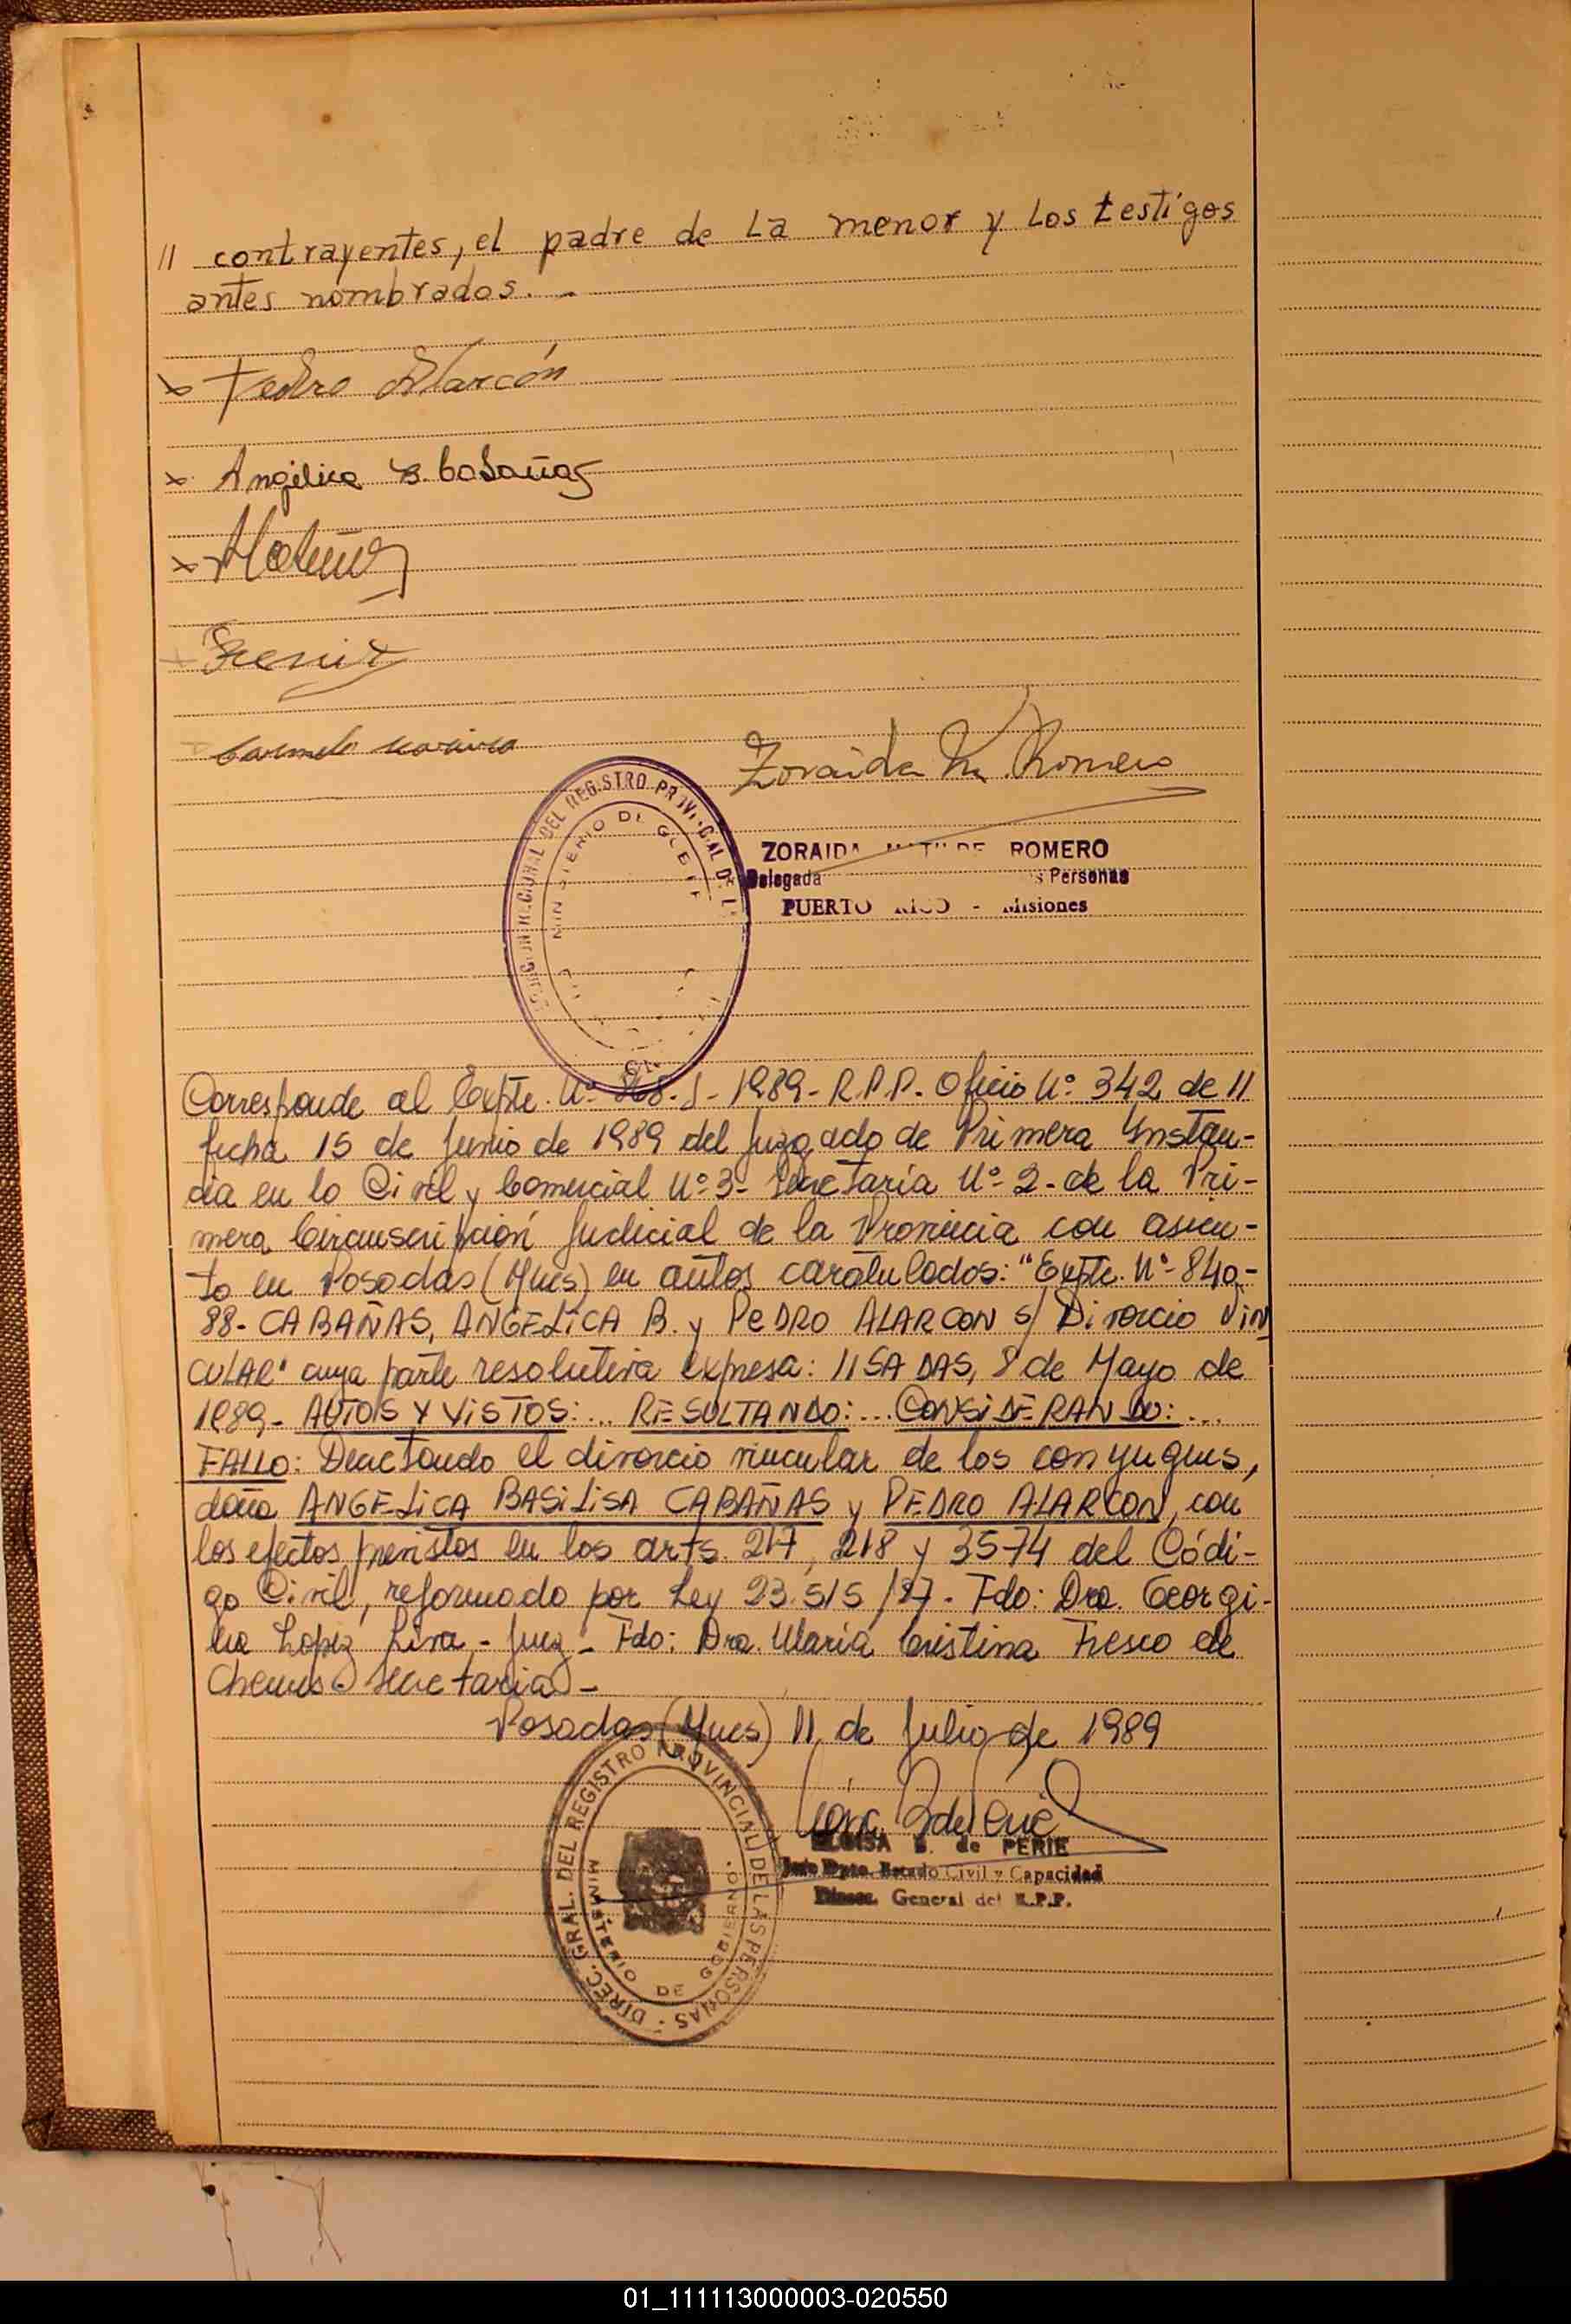 // contrayentes, el padre de La menor y Los testigos
antes nombrados. -
x Pedro Alarcón
x Angélica B. Cabañas
x
Carmelo
Zoraida M. Romero
REGISTRO PROVINCIAL DE
MINISTERIO DE
ZORAIDA ROMERO
Delegada Personas
PUERTO RICO - Misiones
Corresponde al Expte. Nº 868-J-1989- R.P.P. Oficio Nº 342 de //
fecha 15 de Junio de 1989 del Juzgado de Primera Instan-
cia en lo Civil y Comercial Nº 3- Secretaría Nº 2- de la Pri-
mera Circunscripción Judicial de la Provincia con asien-
to en Posadas (Mnes) en autos caratulados: "Expte. Nº 840-
88- CABAÑAS, ANGELICA B. y PEDRO ALARCON s/ Divorcio VIN
CULAR" cuya parte resolutiva expresa: //SADAS, 8 de Mayo de
1989- AUTOS Y VISTOS: ... RESULTANDO: ... CONSIDERANDO: ...
FALLO: Decretando el divorcio vincular de los conyugues,
doña ANGELICA BASILISA CABAÑAS y PEDRO ALARCON, con
los efectos previstos en los arts. 217, 218 y 3574 del Códi-
go Civil, reformado por Ley 23.515/87- Fdo: Dra. Georgi-
na Lopez Liva - Juez - Fdo: Dra. Maria Cristina Fresco de
Chemes - Secretaria -
Posadas (Mnes) 11 de Julio de 1989
DIREC. GRAL. DEL REGISTRO PROVINCIAL DE LAS PERSONAS -
MINISTERIO DE GOBIERNO.
ELOISA B. de PERIE
Jefe Dpto. Estado Civil y Capacidad
Direcc. General del R.P.P.
01_111113000003-020550